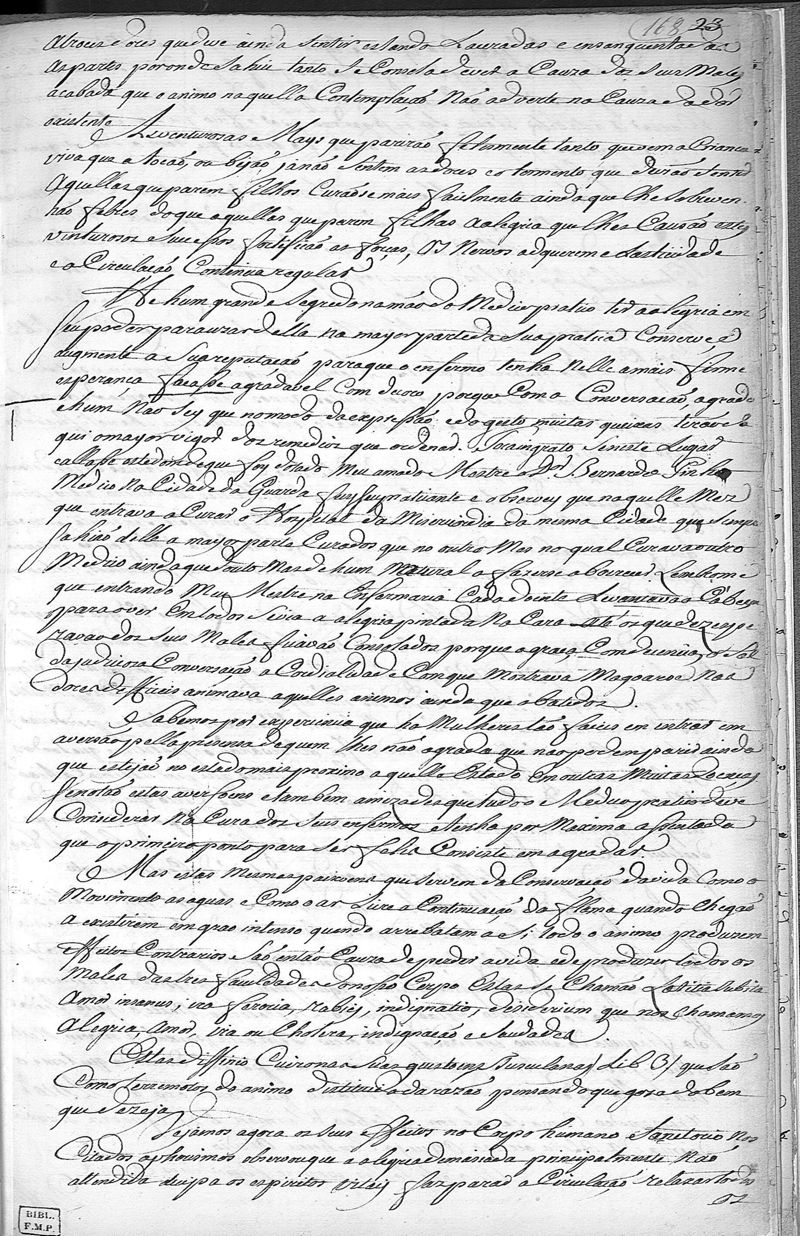 (163 23
atroces dores que deve ainda sentir estando Lauradas e ensanguentadas
as partes por onde sahiu tanto se Consola de ver a Cauza dos seus Males
acabada que o animo naquella Contemplaçaõ Naõ adverte na Cauza da dor
existente
As venturosas Mays que pariraõ felismente tanto que vem a Crianca
viva que a tocaõ, ou bejaõ, ja naõ sentem as dores e o tormento que
Aquellas que parem filhos Curaõse mais facilmente ainda que lhe sobreve
nhaõ febres do que aquellas que parem filhas a alegria que lhes Cauzaõ estes
venturosos sucessos fortificaõ as forças, os Nervos adquirem elasticidade
e a Circulaçaõ Continua regular
He hum grande segredo na maõ do Medico pratico ter a alegria em
seu poder para uzar della na mayor parte da sua pratica Conserve e
augmente a sua reputaçaõ para que o enfermo tenha Nelle a mais firme
esperança facasse agradavel com decoro porque Com a Conversaçaõ, agrado
e hum Naõ sey que no modo da expressaõ e do gesto muitas queixas
qui o mayor vigor dos remedios que ordenar. Fora ingrato se neste Lugar
callasse este dom de que foy dotado Meu amado Mestre o Dr Bernardo
Medico Na Cidade da Guarda fuy seu praticante e observey que naquelle Mez
que entrava a Curar o Hospital da Misericordia da mesma Cidade que sempre
sahiaõ delle a mayor parte Curados que no outro Mes no qual Curava outro
Medico ainda que douto Mas de hum Natural a fazerse aborrecer Lembrome
que entrando Meu Mestre na Enfermaria Cada doente Levantava a Cabeça
para o ver Em todos se via a alegria pintada Na Cara athe os que dezespe
ravaõ dos seus Males ficavaõ Consolados porque a graça, Com decencia, o sal
da judicioza Conversaçaõ a Cordialidade Com que Mostrava Magoarse Nas
dores difficeis animava aquelles animos ainda que abatidos.
Sabemos por experiencia que ha Mulheres taõ faceis em entrar em
aversaõ pella prezença de quem lhes naõ agrada que naõ podem parir ainda
que estejaõ no estado mais proximo a quelle Estado Em outras Muitas
se notaõ estas aversoens e tambem amizades que tudo o Medico pratico deve
Considerar Na Cura dos seus enfermos e tenha por Maxima assentada
que o primeiro ponto para ser feliz Consiste em agradar.
Mas estas Mesmas paixoens que servem da Conservaçaõ da vida Como o
Movimento as aguas e Como o ar Livre a Continuaçaõ da flama quando chegaõ
a existirem em grao intenso quando arrebatam a si todo o animo produzem
effeitos Contrarios saõ entaõ Cauza de perder a vida e de produzir todos os
Males das tres faculdades do nosso Corpo Estas se Chamaõ Lætitia subita
Amor insanus, ira feroria, rabies, indignatio, desiderium que nos chamamos
Alegria, Amor, ira ou Cholera, indignaçaõ e Saudades.
Estas diffinio Cicero nas suas questoens Tusculanas (Lib 3) que saõ
Como terremotos do animo destituido da razaõ pensando que goza do bem
que dezeja
Vejamos agora os seus effeitos no Corpo humano Sanctorio Nos
Citados aphorismos observou que a alegria demaziada principalmente Naõ
attendida dissipa os espiritos vitaes faz parar a Circulaçaõ relaxar todos
os
BIBL.
F.M.P.